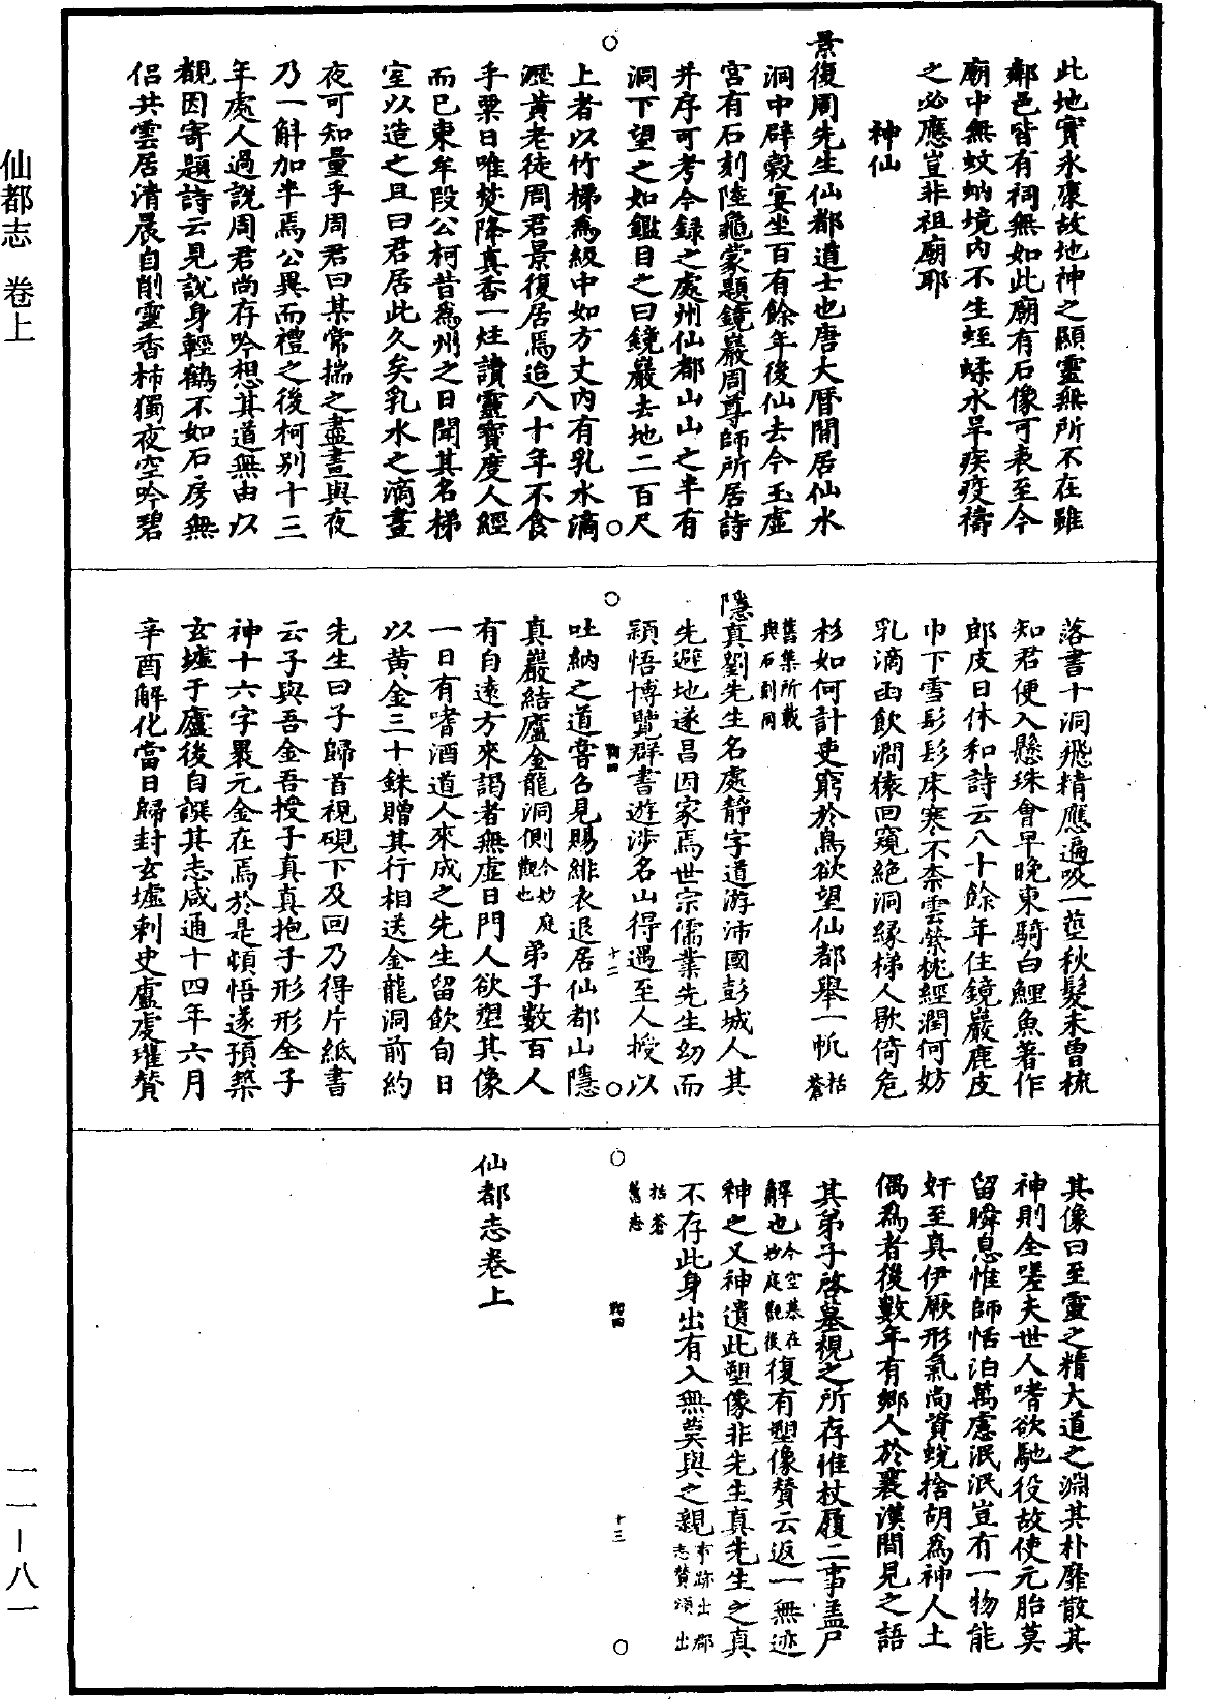 仙都志 卷上
此地實永康故地神之顯靈無所不在雖
鄰邑皆有祠無如此廟有石像可表至今
廟中無蚊蚋境內不生蛭蝚水旱疾疫禱
之必應豈非祖廟耶
神仙
景復周先生仙都道士也唐大曆間居仙水
洞中辟穀宴坐百有餘年後仙去今玉虛
宮有石刻陸龜蒙題鏡巖周尊師所居詩
并序可考今録之處州仙都山山之半有
洞下望之如鑑目之曰鏡巖去地二百尺
上者以竹梯爲級中如方丈內有乳水滴
瀝黃老徒周君景復居焉迨八十年不食
乎粟日唯焚降真香一炷讀靈寶度人經
而已東牟段公柯昔爲州之日聞其名梯
室以造之且曰君居此久矣乳水之滴晝
夜可知量乎周君曰某常揣之盡晝與夜
乃一斛加半焉公異而禮之後柯別十三
年處人過說周君尚存吟想其道無由以
觀因寄題詩云見說身輕鶴不如石房無
侶共雲居清晨自削靈香柿獨夜空吟碧
落書十洞飛精應遍吸一莖秋髮未曾梳
知君便入懸珠會早晚東騎白鯉魚著作
郎皮日休和詩云八十餘年住鏡巖鹿皮
巾下雪髟髟床寒不柰雲縈枕經潤何妨
乳滴函飲澗猿回窺絕洞緣梯人歇倚危
杉如何計吏窮於鳥欲望仙都舉一帆括蒼
舊集所載
與石刻同
隱真劉先生名處靜字道游沛國彭城人其
先避地遂昌因家焉世宗儒業先生幼而
穎悟博覽群書遊涉名山得遇至人授以
鞠四 十二
吐納之道嘗召見賜緋衣退居仙都山隱
真巖結廬金龍洞側今妙庭觀也弟子數百人
有自遠方來謁者無虛日門人欲塑其像
一日有嗜酒道人來成之先生留飲旬日
以黃金三十銖贈其行相送金龍洞前約
先生曰子歸首視硯下及回乃得片紙書
云子與吾金吾授子真真抱子形形全子
神十六字畧元金在焉於是頓悟遂預築
玄墟于廬後自譔其志咸通十四年六月
辛酉解化當日歸封玄墟刺史盧虔瓘贊
其像曰至靈之精大道之淵其朴靡散其
神則全嗟夫世人嗜欲馳役故使元胎莫
留瞬息惟師恬泊萬慮泯泯豈有一物能
奸至真伊厥形氣尚資蛻捨胡爲神人土
偶爲者後數年有鄉人於襄漢間見之語
其弟子啓墓視之所存惟杖履二事盖尸
解也今空墓在妙庭觀後復有塑像贊云返一無迹
神之又神遺此塑像非先生真先生之真
不存此身出有入無莫與之親事跡出郡志贊頌出
括蒼
舊志
鞠四 十三
仙都志卷上
一一—八一